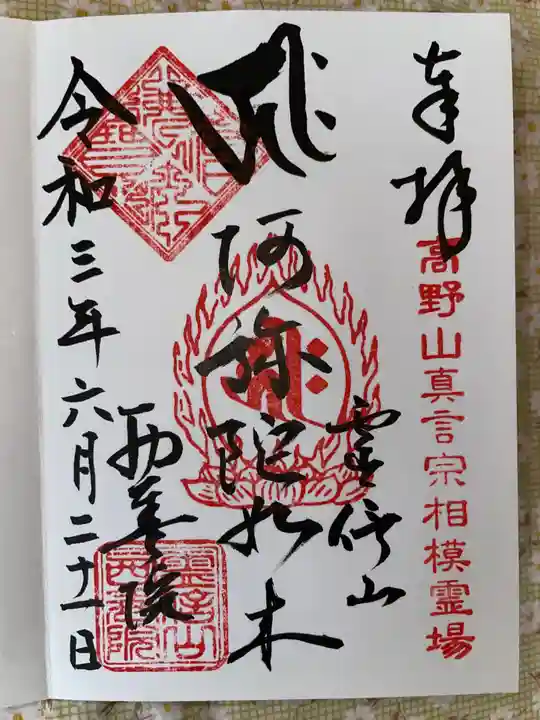 奉拝
高野山真言宗相模霊場
阿弥陀如来
西善院
令和三年六月二十一日